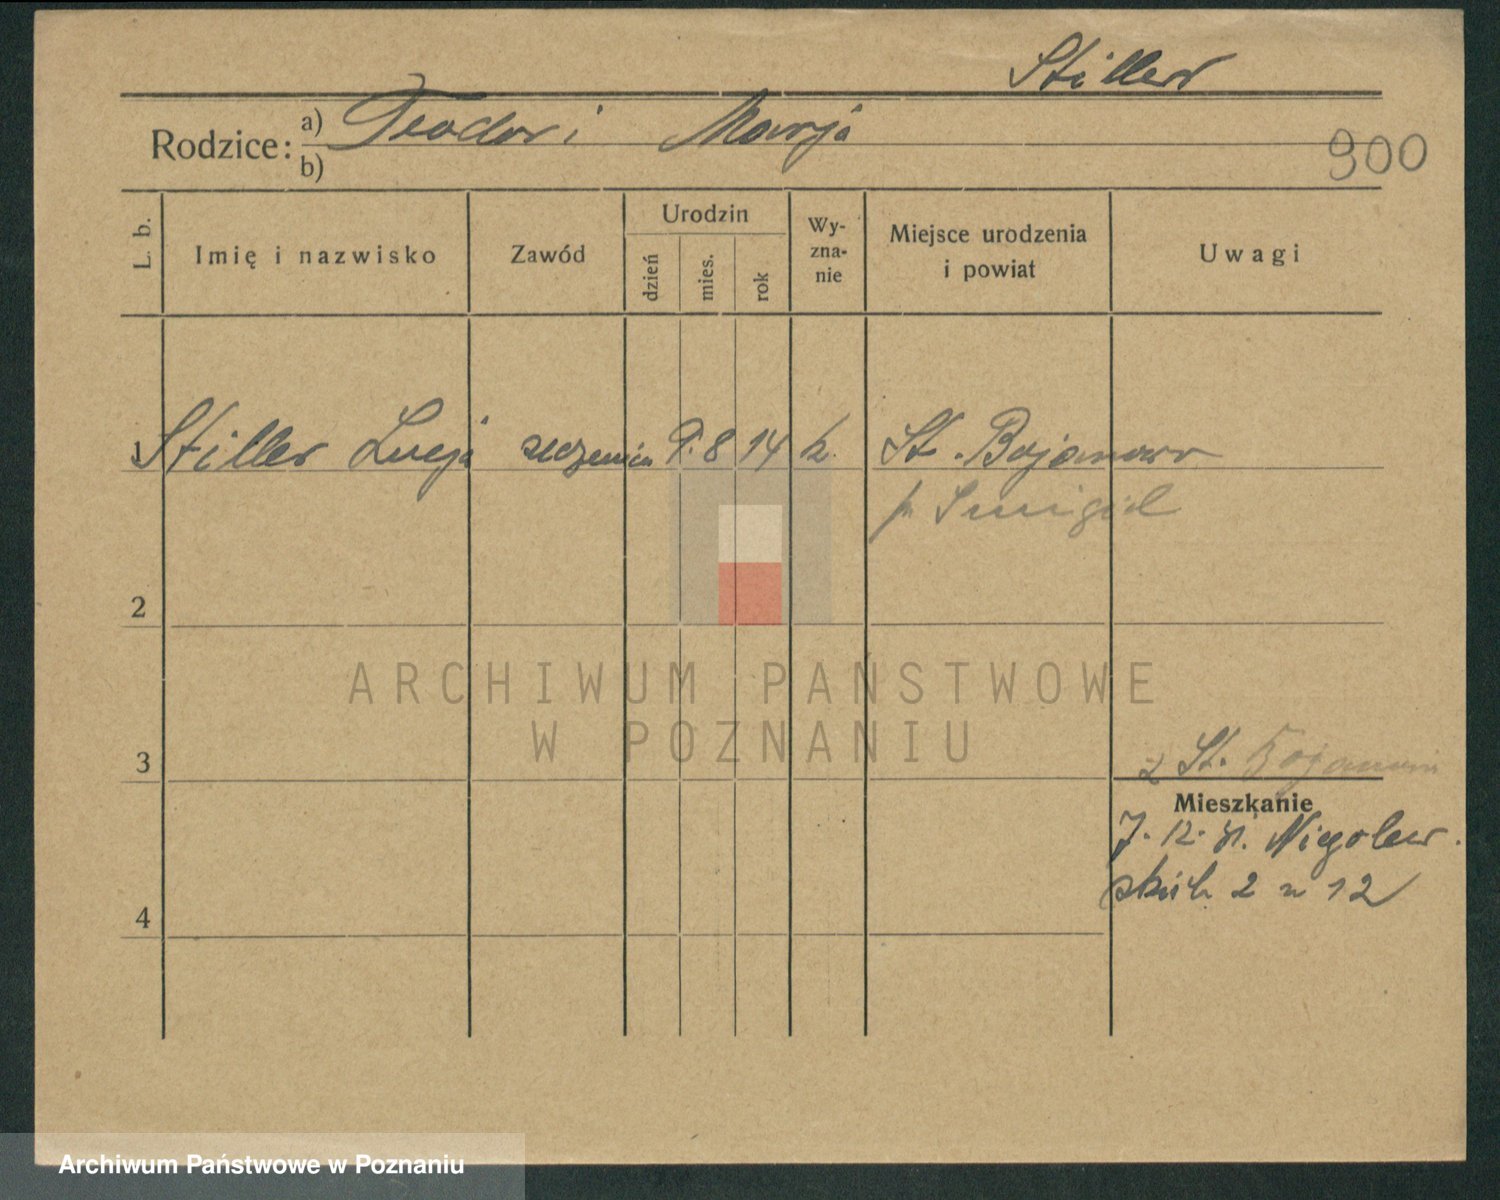 Stiller
Rodzice: a) Teodor i Marja
b)
900
L. b.
Imię i nazwisko
Zawód
Urodzin
dzień
mies.
rok
Wy-
zna-
nie
Miejsce urodzenia
i powiat
Uwagi
1 Stiller Lucja uczenica 9. 8 14 k. St. Bojanowo
p. Smigiel
2
ARCHIWUM PAŃSTWOWE
W POZNANIU
3
z St. Bojanowa
Mieszkanie
7. 12. 31. Niegolew.
skich 2 m 12
4
Archiwum Państwowe w Poznaniu